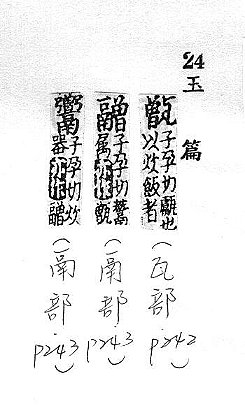 24 玉篇
甑 子孕切甗也
以炊飯者
(瓦部 p242)
䰝 子孕切鬵
属亦作甑
(鬲部 p243)
子孕切炊
器亦作䰝
(鬲部 p243)